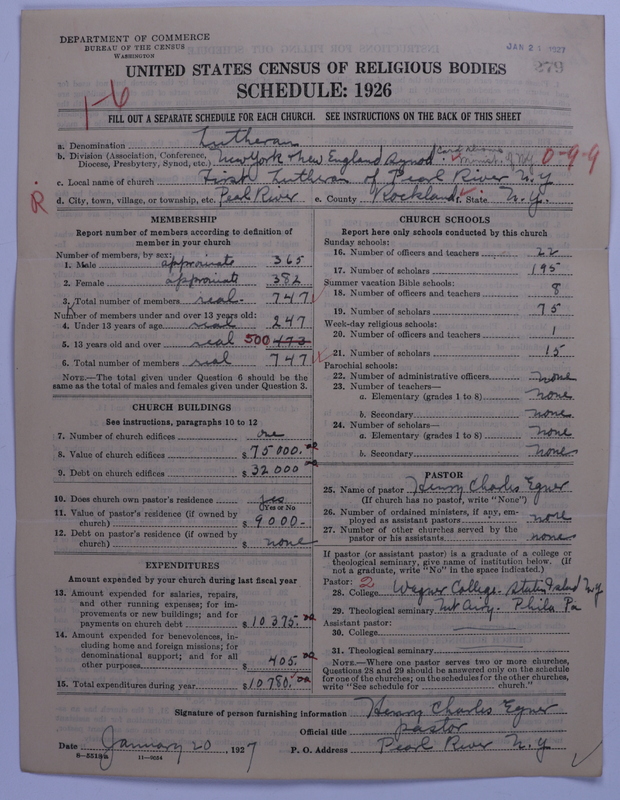 DEPARTMENT OF COMMERCE
BUREAU OF THE CENSUS
WASHINGTON
JAN 21 1927
279
UNITED STATES CENSUS OF RELIGIOUS BODIES
SCHEDULE: 1926
1-6
FILL OUT A SEPARATE SCHEDULE FOR EACH CHURCH. SEE INSTRUCTIONS ON THE BACK OF THIS SHEET
a. Denomination Lutheran
b. Division (Association, Conference, Diocese, Presbytery, Synod, etc.) New York + New England Synod 0-9-9
c. Local name of church First Lutheran of Pearl River N.Y
R
d. City, town, village, or township, etc. Pearl River e. County Rockland f. State N.Y.
MEMBERSHIP
Report number of members according to definition of
member in your church
Number of members, by sex:
1. Male approximate 365
2. Female approximate 382
3. Total number of members real 747
Number of members under and over 13 years old:
4. Under 13 years of age real 247
5. 13 years old and over real 500 473
6. Total number of members real 747
NOTE.—The total given under Question 6 should be the
same as the total of males and females given under Question 3.
CHURCH BUILDINGS
See instructions, paragraphs 10 to 12
7. Number of church edifices one
8. Value of church edifices $75000.00
9. Debt on church edifices $32000.00
10. Does church own pastor's residence yes
(Yes or No)
11. Value of pastor's residence (if owned by
church) $9000-
12. Debt on pastor's residence (if owned by
church) $none
EXPENDITURES
Amount expended by your church during last fiscal year
13. Amount expended for salaries, repairs,
and other running expenses; for im-
provements or new buildings; and for
payments on church debt $10375.00
14. Amount expended for benevolences, in-
cluding home and foreign missions; for
denominational support; and for all
other purposes $405.00
15. Total expenditures during year $10780.00
CHURCH SCHOOLS
Report here only schools conducted by this church
Sunday schools:
16. Number of officers and teachers 22
17. Number of scholars 195
Summer vacation Bible schools:
18. Number of officers and teachers 8
19. Number of scholars 75
Week-day religious schools:
20. Number of officers and teachers 1
21. Number of scholars 15
Parochial schools:
22. Number of administrative officers none
23. Number of teachers—
a. Elementary (grades 1 to 8) none
b. Secondary none
24. Number of scholars—
a. Elementary (grades 1 to 8) none
b. Secondary none
PASTOR
25. Name of pastor Henry Charles Egner
(If church has no pastor, write "None")
26. Number of ordained ministers, if any, em-
ployed as assistant pastors none
27. Number of other churches served by the
pastor or his assistants none
If pastor (or assistant pastor) is a graduate of a college or
theological seminary, give name of institution below. (If
not a graduate, write "No" in the space indicated.)
Pastor: 2
28. College Wagner College. Staten Island N.Y
29. Theological seminary Mt Airy. Phila. Pa
Assistant pastor:
30. College
31. Theological seminary
NOTE.—Where one pastor serves two or more churches,
Questions 28 and 29 should be answered only on the schedule
for one of the churches; on the schedules for the other churches,
write "See schedule for church."
Signature of person furnishing information Henry Charles Egner
Official title pastor
Date January 20, 1927 P. O. Address Pearl River N.Y
8-5518a 11-9054